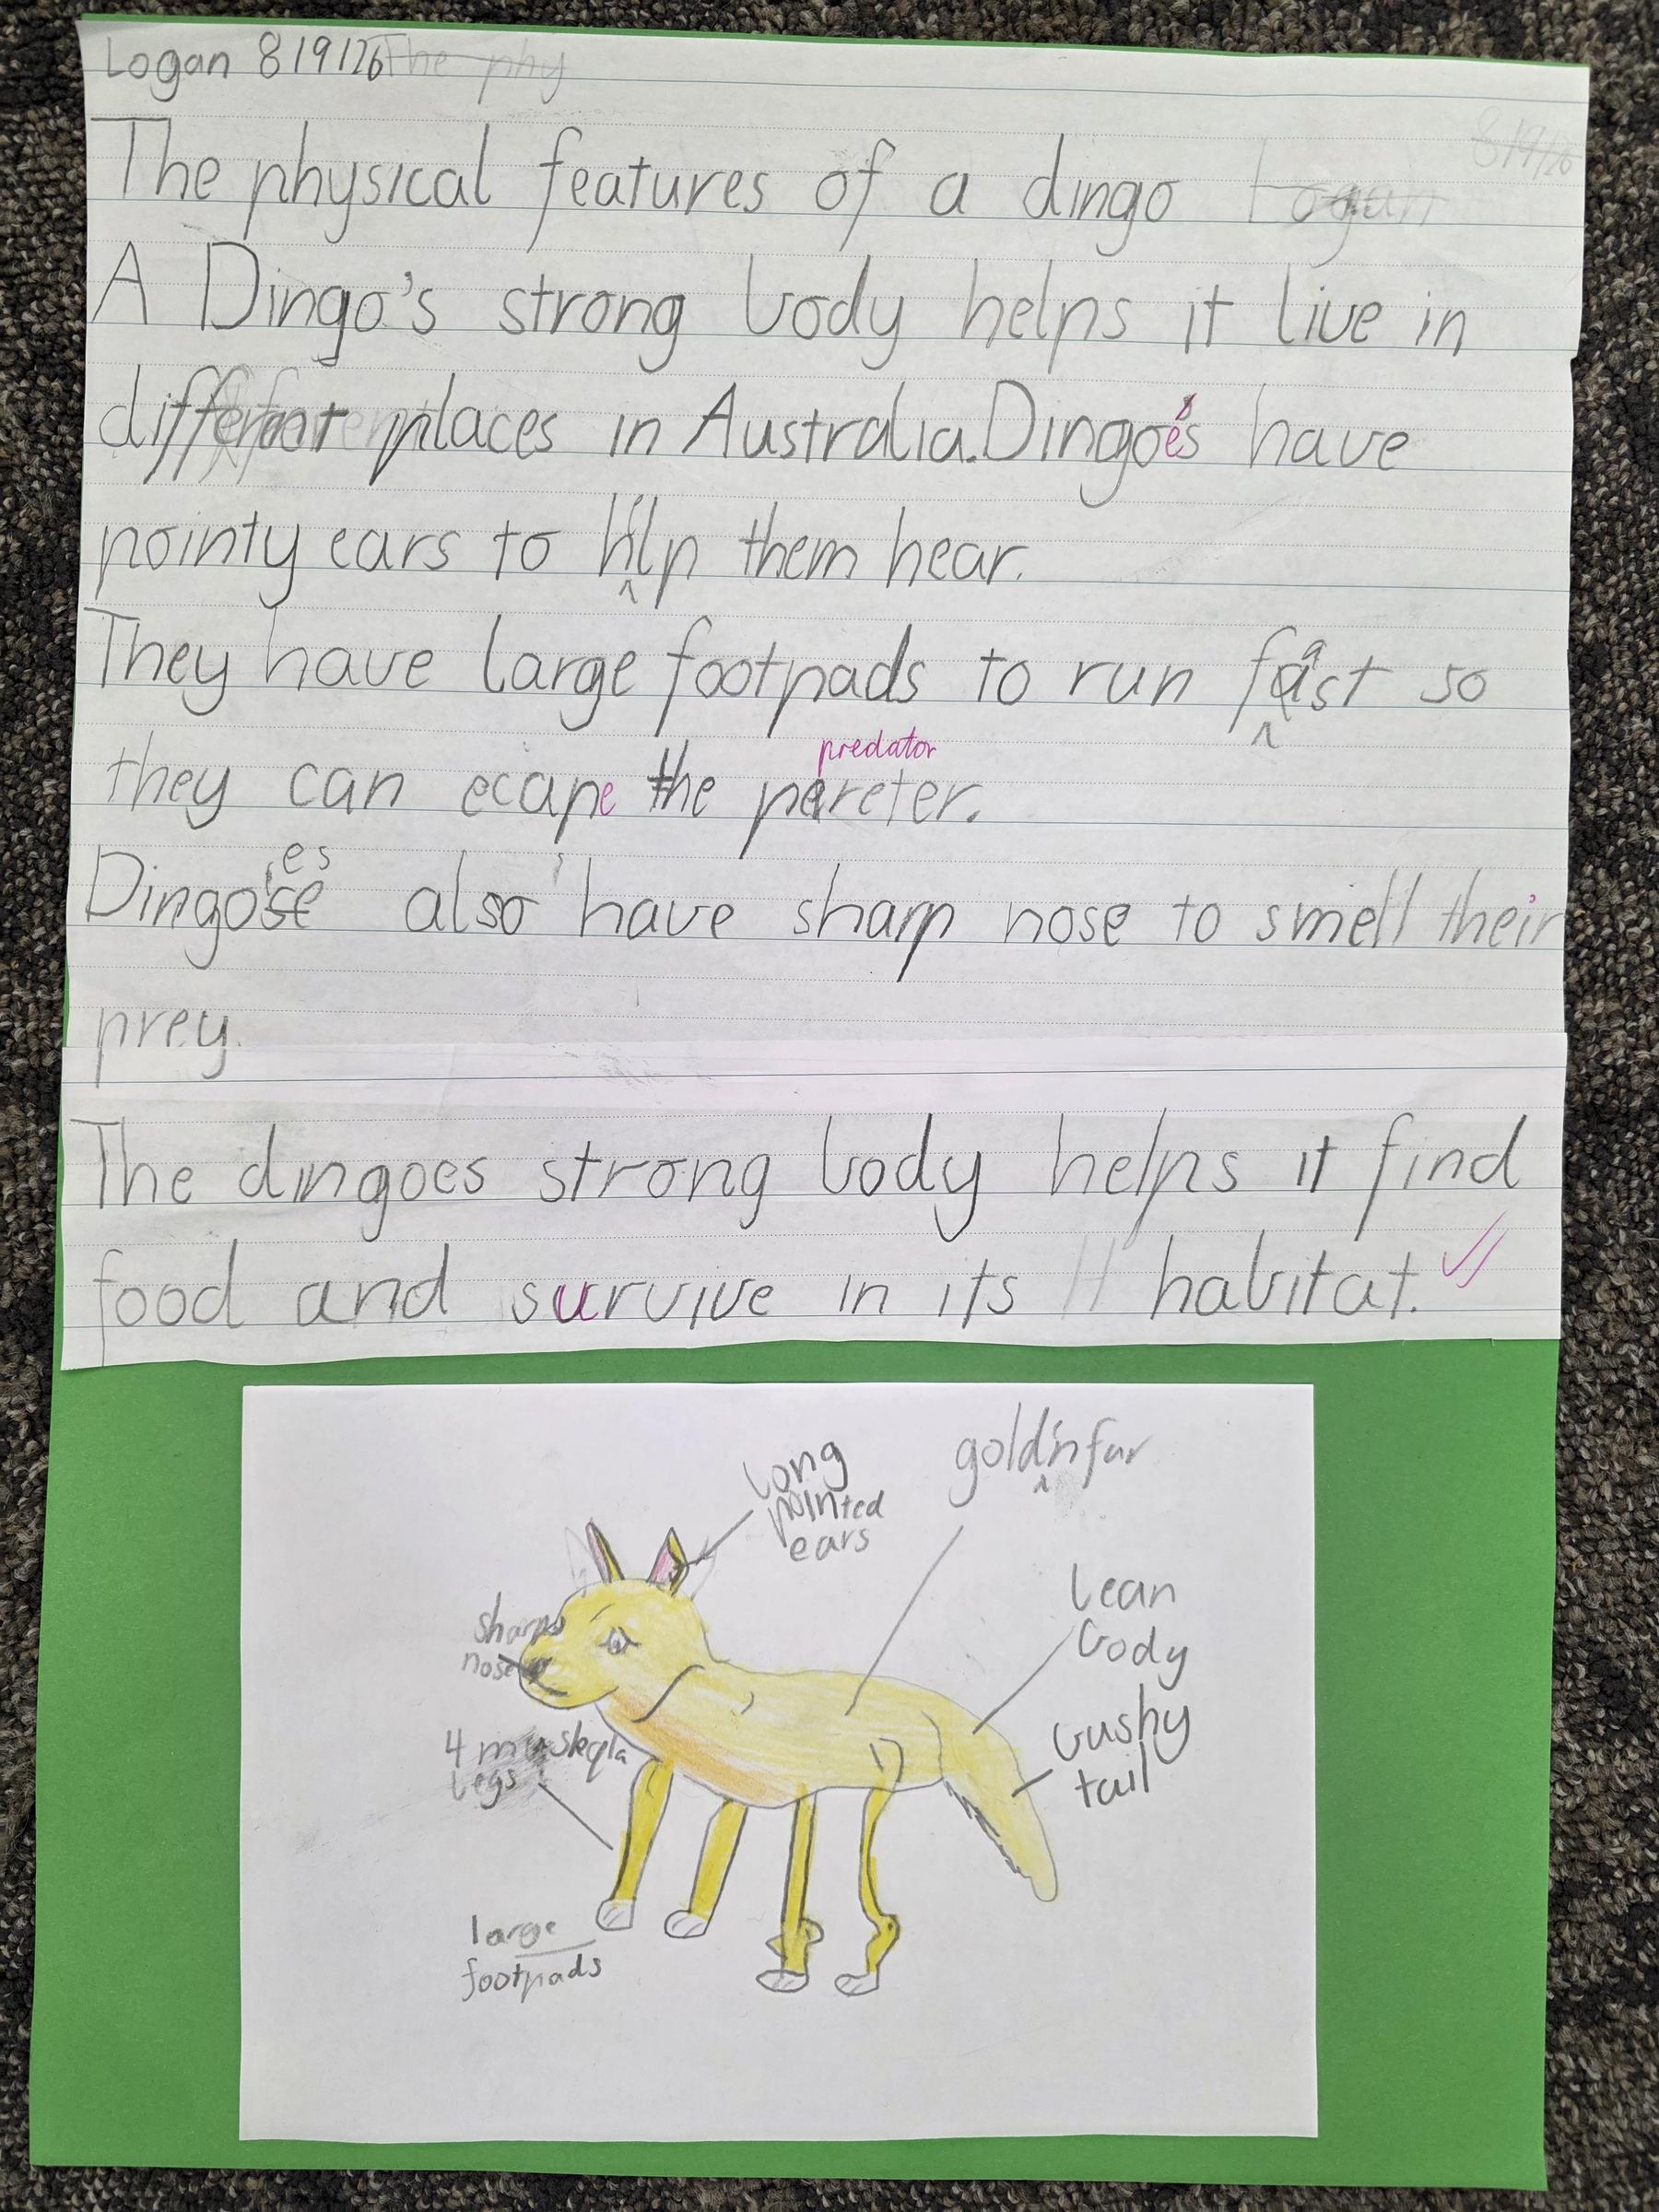 Logan 8/9/26 The phy
The physical features of a dingo Logan 8/9/26
A Dingo's strong body helps it live in
different places in Australia. Dingoes have
pointy ears to help them hear.
They have large footpads to run fast so
predator
they can ecape the pereter.
es
Dingo's also have sharp nose to smell their
prey.
The dingoes strong body helps it find
food and survive in its habitat.
long
pointed
ears
goldin fur
lean
body
bushy
tail
sharp
nose
4 muskqla
legs
large
footpads